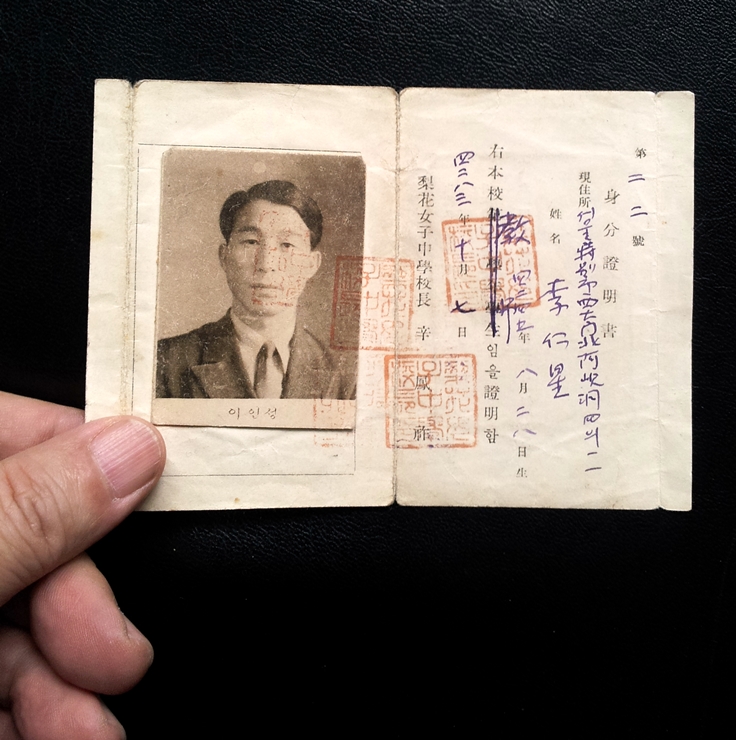 第二二號
身分證明書
現住所 서울特別市西大門北阿峴洞四의二
姓名 李仁星
四二四五年八月二八日生
右本校敎師임을證明함
四二八三年十月七日
梨花女子中學校長 辛鳳祚
이인성